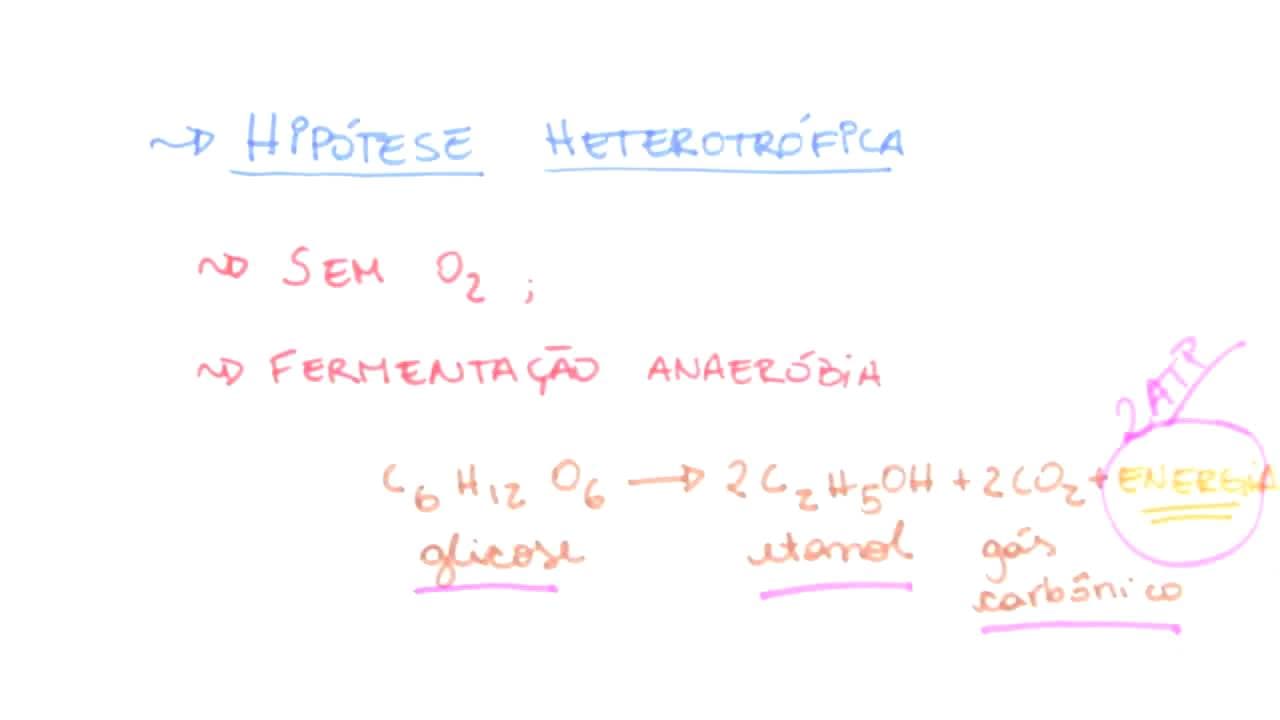 ~> HIPÓTESE HETEROTRÓFICA
~> SEM O₂ ;
~> FERMENTAÇÃO ANAERÓBIA
2 ATP
C₆ H₁₂ O₆ → 2 C₂ H₅OH + 2CO₂ + ENERGIA
glicose etanol gás
carbônico